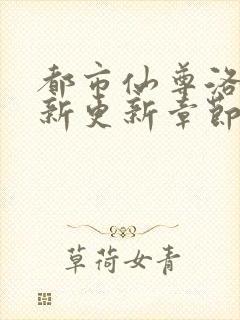 都市仙尊洛
新更新章節
草荷女青